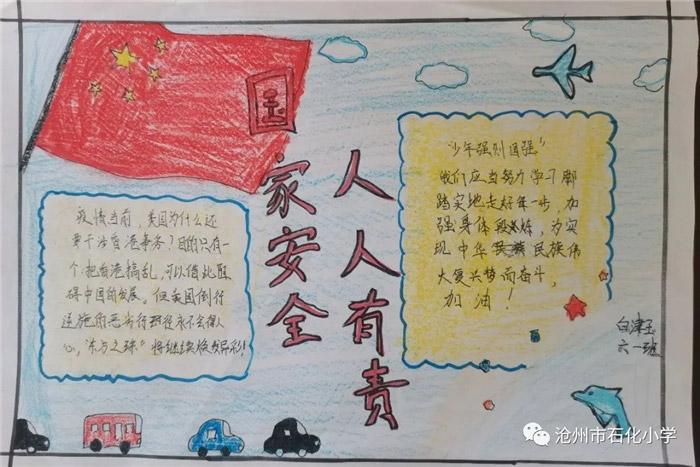 国家安全
人人有责
疫情当前,美国为什么还
要干涉香港事务?目的只有一
个:把香港搞乱,可以借此阻
碍中国的发展。但美国倒行
逆施的恶劣行径永不会得人
心,"东方之珠"将继续焕发异彩!
"少年强则国强"
我们应当努力学习脚
踏实地走好每一步,加
强身体锻炼,为实
现中华民族伟
大复兴梦而奋斗,
加油!
白津玉
六一班
沧州市石化小学